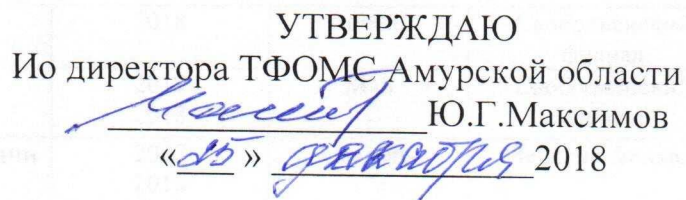 УТВЕРЖДАЮ
Ио директора ТФОМС Амурской области
Ю.Г.Максимов
«25» декабря 2018